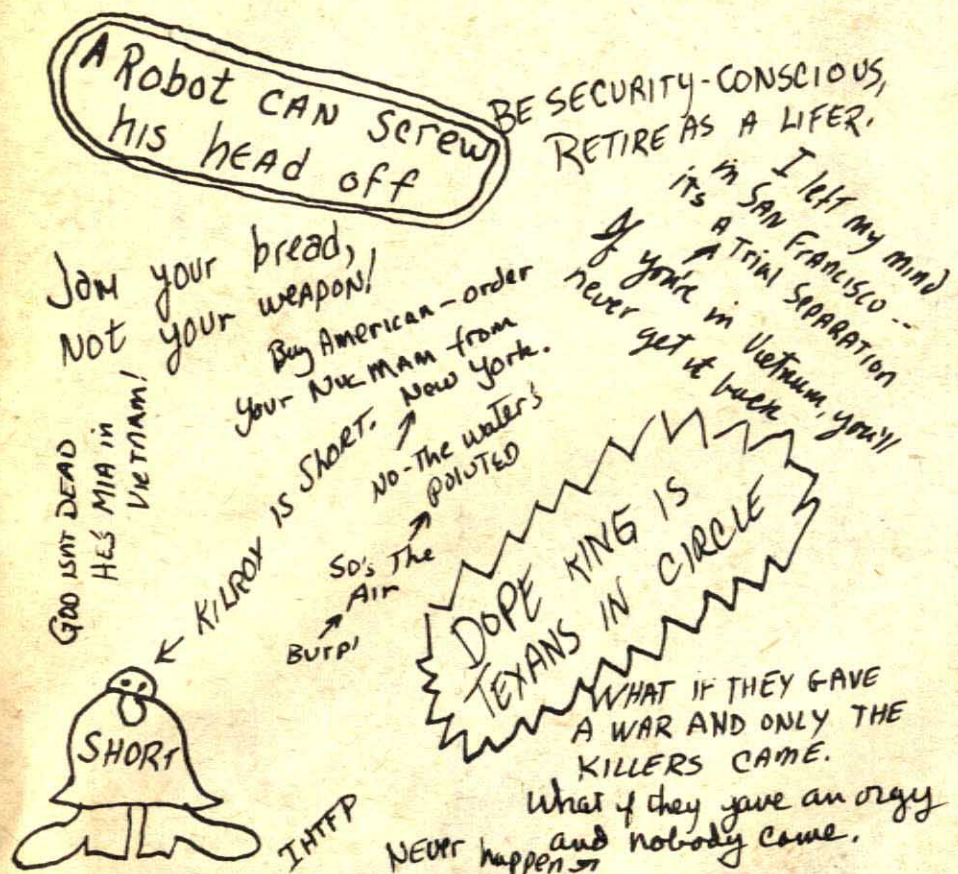 A Robot CAN screw
his hEAD off
BE SECURITY-CONSCIOUS,
RETIRE AS A LIFER.
I left my mind
in SAN FRANCISCO--
it's a Trial SEPARATION
If you're in Vietnam, you'll
never get it back
Jam your bread,
Not your weapon!
Buy American-order
your Nuc MAM from
New York.
No-The water's
POLUTED
So's The
Air
Burp!
GOD ISNT DEAD
HE'S MIA in
VIETNAM!
KILROY IS SHORT.
SHORT
DOPE KING IS
TEXANS IN CIRCLE
WHAT IF THEY GAVE
A WAR AND ONLY THE
KILLERS CAME.
What if they gave an orgy
and nobody came.
NEVER happen
IHTFP